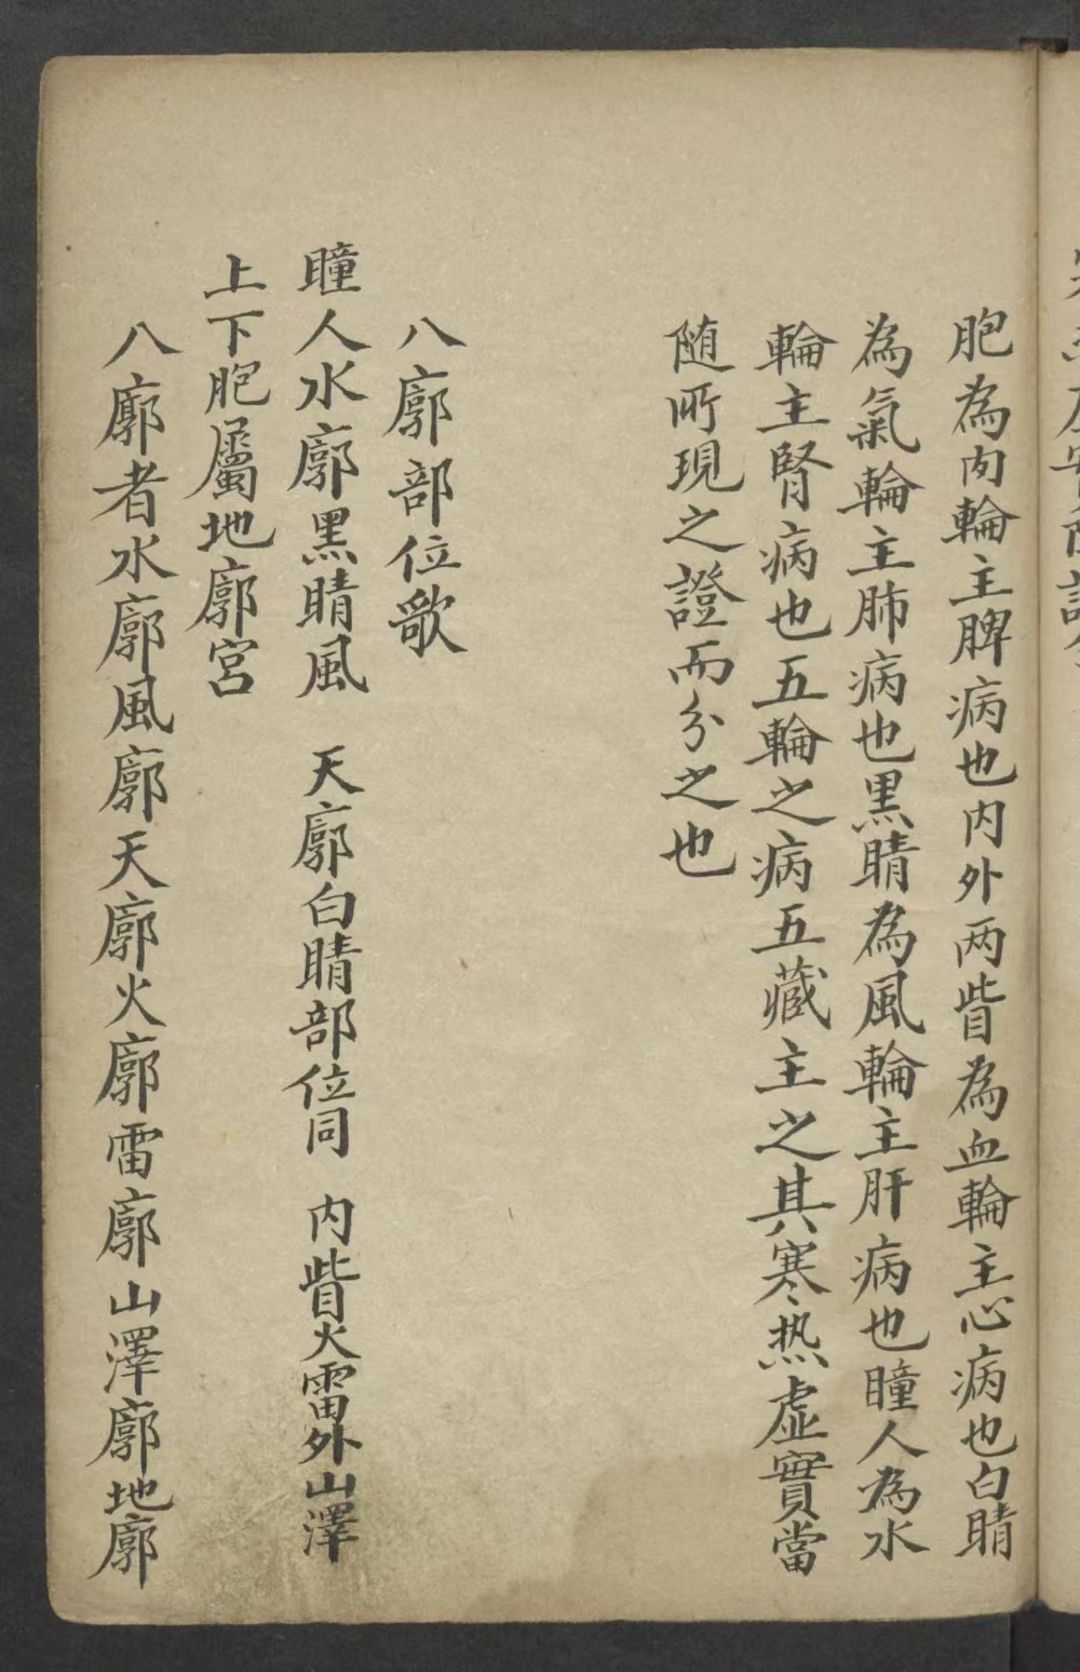 胞為肉輪主脾病也内外两眥為血輪主心病也白睛
為氣輪主肺病也黒睛為風輪主肝病也瞳人為水
輪主腎病也五輪之病五藏主之其寒热虚實當
随所現之證而分之也
八廓部位歌
瞳人水廓黒睛風　天廓白睛部位同　内眥火雷外山澤
上下胞屬地廓宮
八廓者水廓風廓天廓火廓雷廓山澤廓地廓